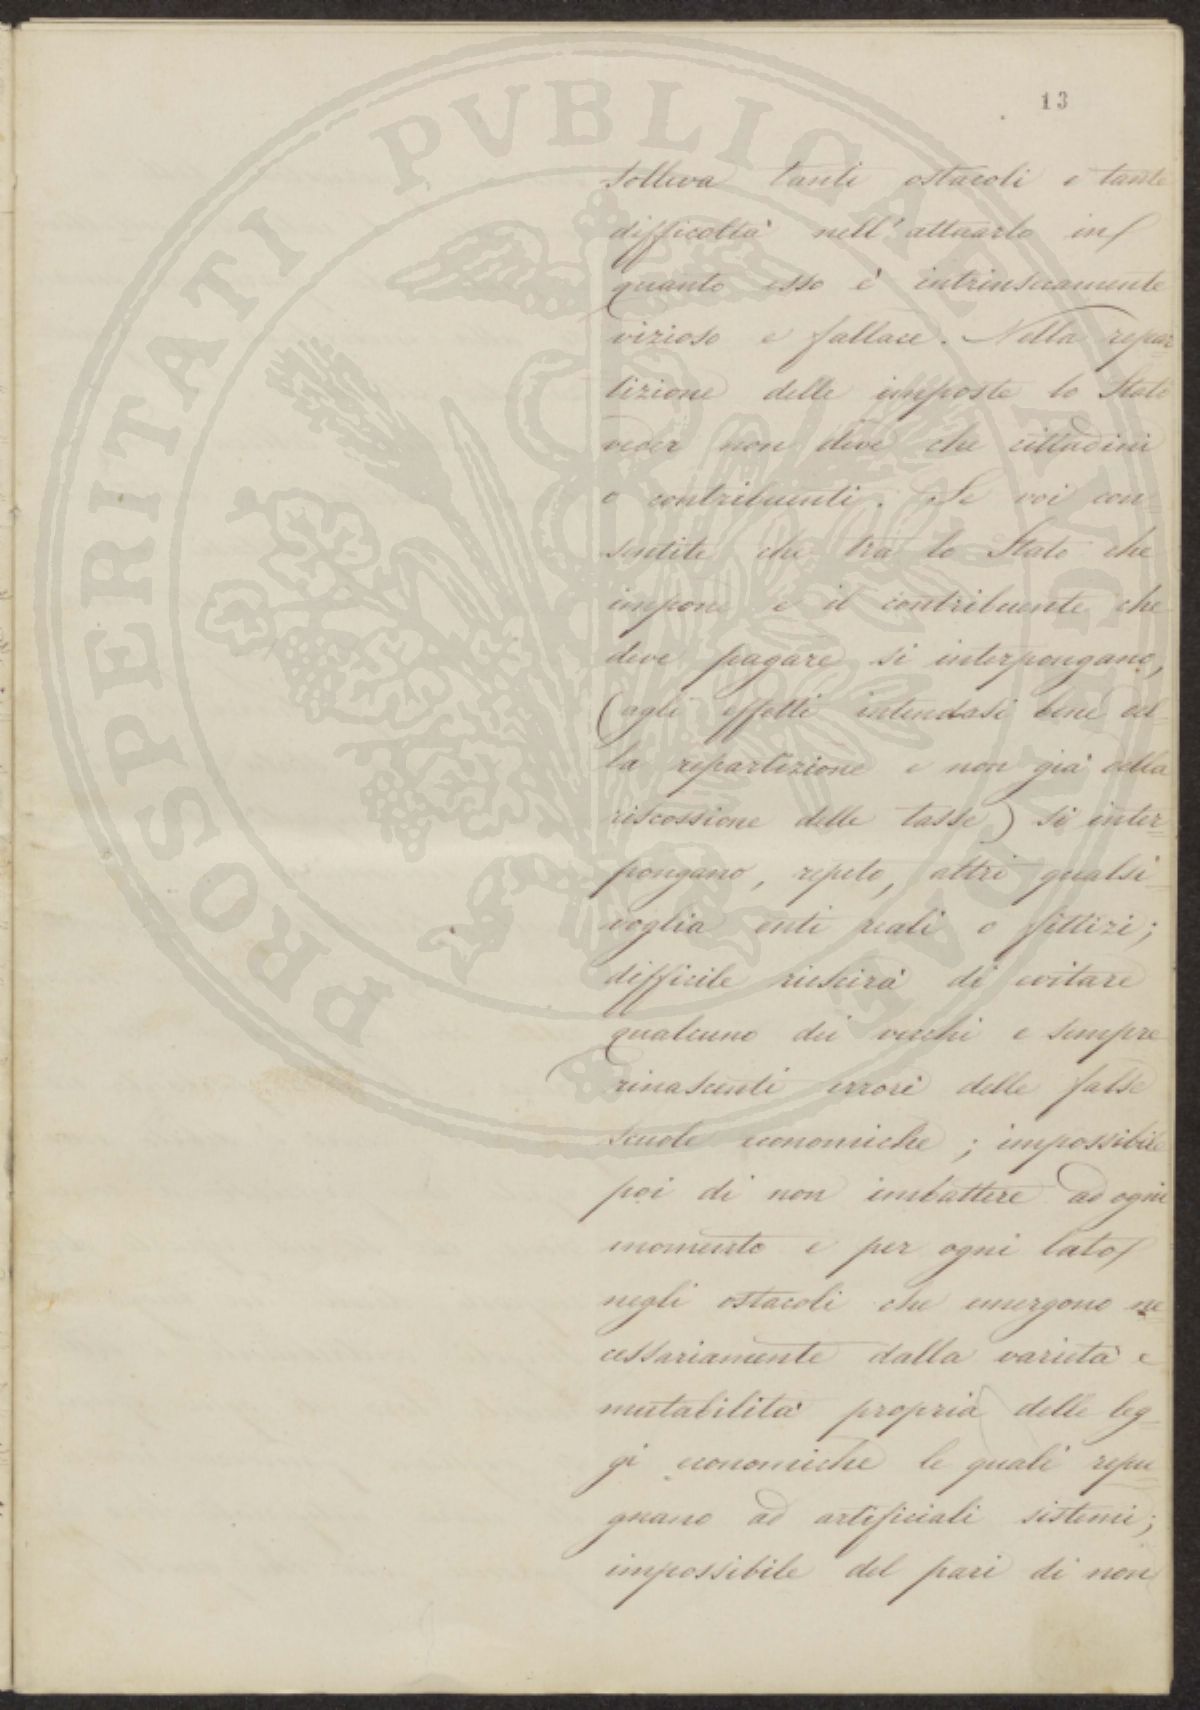 13
solleva tanti ostacoli e tante
difficoltà nell'attuarlo in
quanto esso è intrinsecamente
vizioso e fallace. Nella repar-
tizione delle imposte lo Stato
veder non deve che cittadini
o contribuenti. Se voi con-
sentite che tra lo Stato che
impone e il contribuente che
deve pagare si interpongano,
(agli effetti intendasi bene del-
la repartizione e non già della
riscossione delle tasse) si inter-
pongano, repeto, altri qualsi-
voglia enti reali o fittizi;
difficile riescirà di evitare
qualcuno dei vecchi e sempre
rinascenti errori delle false
scuole economiche; impossibile
poi di non imbattere ad ogni
momento e per ogni lato
negli ostacoli che emergono ne-
cessariamente dalla varietà e
mutabilità propria delle leg-
gi economiche le quali repu-
gnano ad artificiali sistemi;
impossibile del pari di non
PROSPERITATI PVBLICAE AVGENDAE